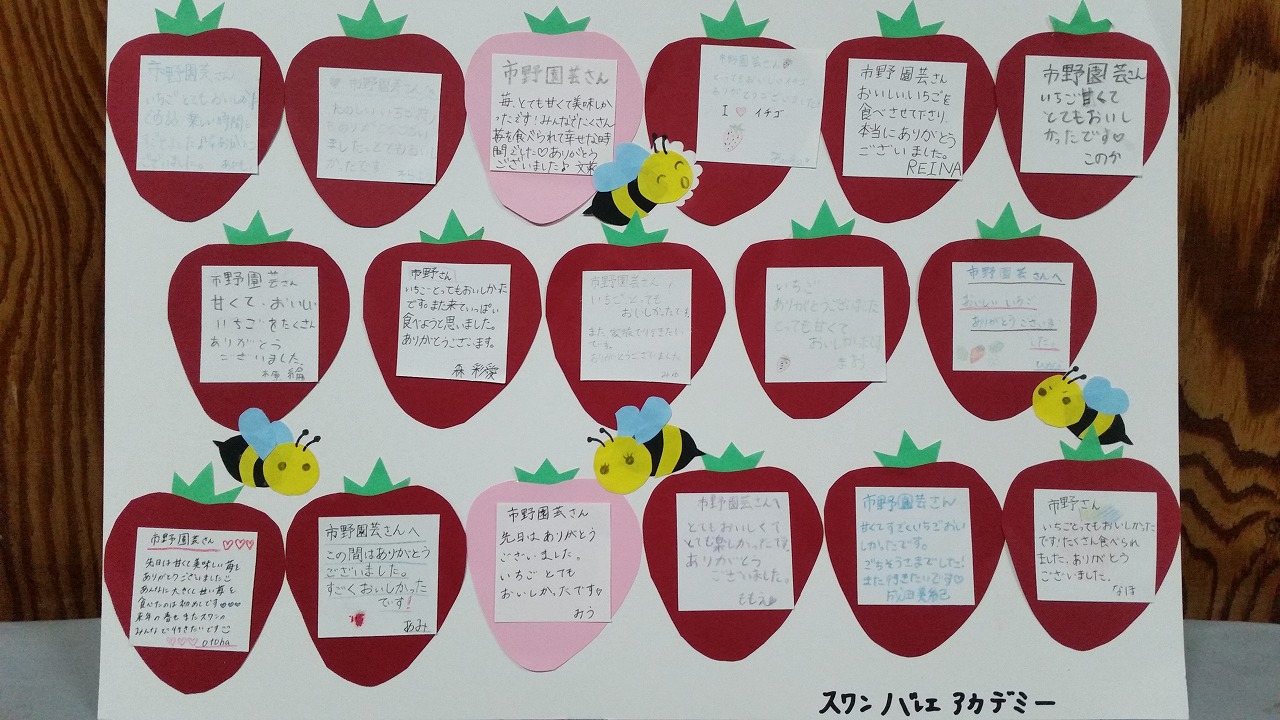 市野園芸さん
いちごとてもおいしかった
です。楽しい時間を
ありがとう
ございました。
♥ 市野園芸さん
ました。とてもおいし
かったです
市野園芸さん
苺、とても甘くて美味しか
ったです!みんなでたくさん
苺を食べられて幸せな時
間でした♡ありがとう
ございました♪
市野園芸さん
とってもおいしいイチゴ
ありがとうございました!
I ♥ イチゴ
市野園芸さん
おいしいいちごを
食べさせて下さり
本当にありがとう
ございました。
REINA
市野園芸さん
いちご甘くて
とてもおいし
かったです♡
このか
市野園芸さん
甘くて、おいしい
いちごをたくさん
ありがとう
ございました。
市野さん
いちごとってもおいしかった
です。また来ていっぱい
食べようと思いました。
ありがとうございます。
森 彩愛
市野園芸さん
いちごとっても
おいしかったです
また、家族で行きたい
です。
ありがとうございました
みゆ
いちご
ありがとうございました
とっても甘くて
おいしかったです
まお
市野園芸さんへ
おいしい いちご
ありがとうございま
した。
市野園芸さん ♡♡♡
先日は甘くて美味しい苺を
ありがとうございました
あんなに大きくて甘い苺を
食べたのは初めてです♡♡♡
来年の春もまたスワンの
みんなで行きたいです
♡♡♡ otoha
市野園芸さんへ
この間はありがとう
ございました。
すごくおいしかった
です!
あみ
市野園芸さん
先日は ありがとう
ございました。
いちご とても
おいしかったです♡
みう
市野園芸さんへ
とてもおいしくて
とても楽しかったです。
ありがとう
ございました。
ももえ
市野園芸さん
甘くてすごくいちごおい
しかったです。
ごちそうさまでした!
また行きたいです♡
市野さん
いちごとってもおいしかった
です!たくさん食べられ
ました。ありがとう
ございました。
なほ
スワン バレエ アカデミー